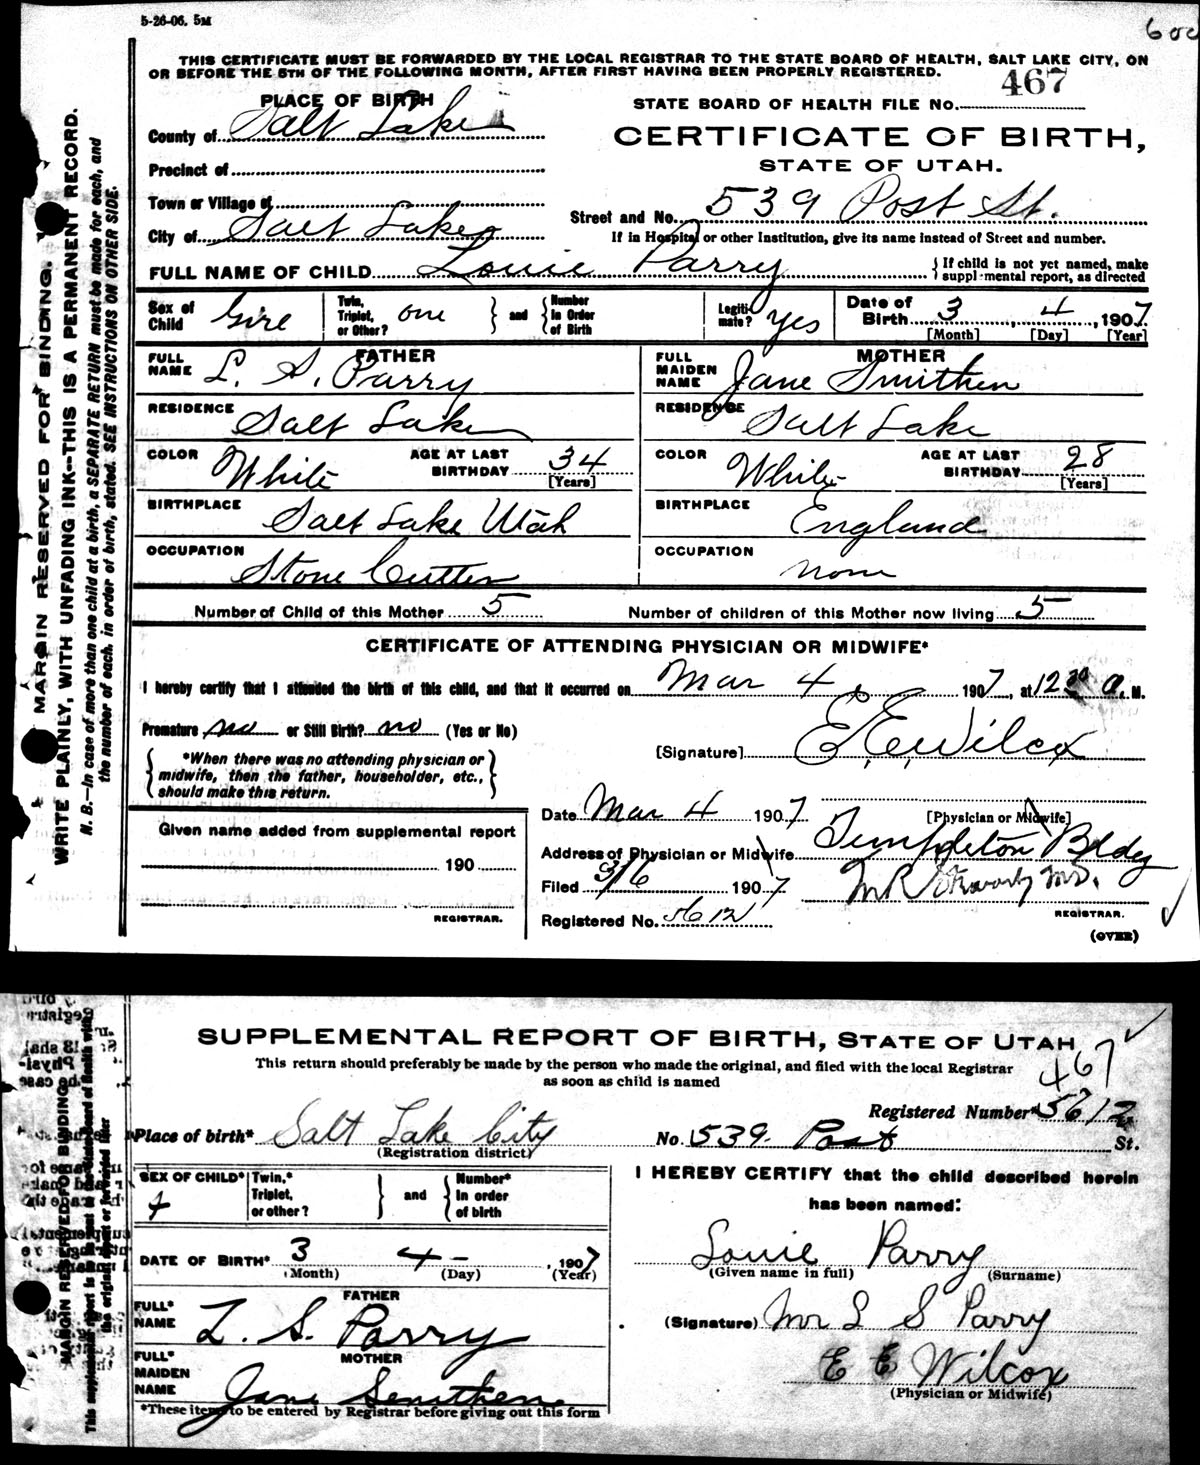 5-26-06. 5M
600
THIS CERTIFICATE MUST BE FORWARDED BY THE LOCAL REGISTRAR TO THE STATE BOARD OF HEALTH, SALT LAKE CITY, ON
OR BEFORE THE 5TH OF THE FOLLOWING MONTH, AFTER FIRST HAVING BEEN PROPERLY REGISTERED.
MARGIN RESERVED FOR BINDING.
WRITE PLAINLY, WITH UNFADING INK--THIS IS A PERMANENT RECORD.
N. B.—In case of more than one child at a birth, a SEPARATE RETURN must be made for each, and
the number of each, in order of birth, stated. SEE INSTRUCTIONS ON OTHER SIDE.
PLACE OF BIRTH
County of Salt Lake
Precinct of
Town or Village of
City of Salt Lake
STATE BOARD OF HEALTH FILE No. 467
CERTIFICATE OF BIRTH,
STATE OF UTAH.
Street and No. 539 Post St.
If in Hospital or other Institution, give its name instead of Street and number.
FULL NAME OF CHILD Louie Parry
If child is not yet named, make
supplemental report, as directed
Sex of Child Girl
Twin, Triplet, or Other? one and Number in Order of Birth
Legitimate? yes
Date of Birth 3, 4, 1907
[Month] [Day] [Year]
FATHER
FULL NAME L. S. Parry
RESIDENCE Salt Lake
COLOR White AGE AT LAST BIRTHDAY 34 [Years]
BIRTHPLACE Salt Lake Utah
OCCUPATION Stone Cutter
MOTHER
FULL MAIDEN NAME Jane Smithen
RESIDENCE Salt Lake
COLOR White AGE AT LAST BIRTHDAY 28 [Years]
BIRTHPLACE England
OCCUPATION none
Number of Child of this Mother 5 Number of children of this Mother now living 5
CERTIFICATE OF ATTENDING PHYSICIAN OR MIDWIFE*
I hereby certify that I attended the birth of this child, and that it occurred on Mar 4, 1907, at 12 30 a. M.
Premature no or Still Birth? no (Yes or No)
[Signature] E. E. Wilcox
*When there was no attending physician or
midwife, then the father, householder, etc.,
should make this return.
Given name added from supplemental report
190
REGISTRAR.
[Physician or Midwife]
Date Mar 4 1907
Address of Physician or Midwife Templeton Bldg
Filed 3/6 1907
M.D.
REGISTRAR.
Registered No. 5612
(OVER)
MARGIN RESERVED FOR BINDING
SUPPLEMENTAL REPORT OF BIRTH, STATE OF UTAH
This return should preferably be made by the person who made the original, and filed with the local Registrar
as soon as child is named
467
Registered Number* 5612
Place of birth* Salt Lake City No. 539 Post St.
(Registration district)
SEX OF CHILD* f
Twin,* Triplet, or other? and Number* in order of birth
DATE OF BIRTH* 3 4 - , 1907
(Month) (Day) (Year)
FATHER
FULL* NAME L. S. Parry
MOTHER
FULL* MAIDEN NAME Jane Smithen
*These items to be entered by Registrar before giving out this form
I HEREBY CERTIFY that the child described herein
has been named:
Louie Parry
(Given name in full) (Surname)
(Signature) Mr L S Parry
E E Wilcox
(Physician or Midwife)